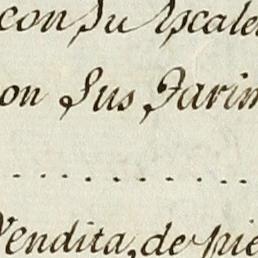 con Su Escale
on Sus Tarim
. . . . . . . . . . . .
Vendita, de pie